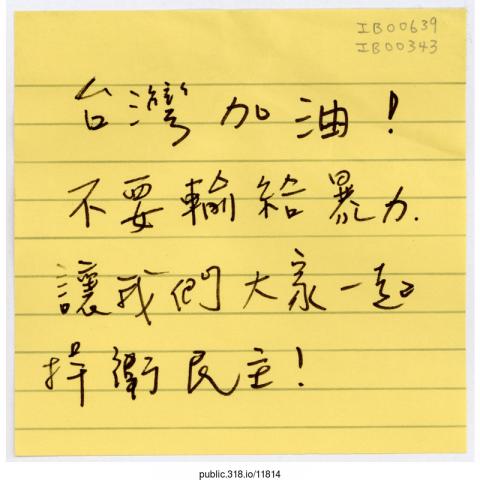 IB00639
IB00343
台灣加油！
不要輸給暴力.
讓我們大家一起
捍衛民主！
public.318.io/11814